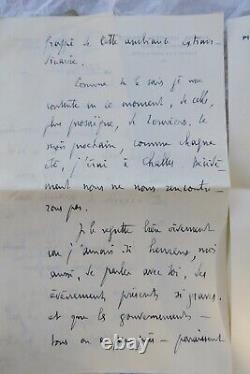 frappé de cette ambiance extraor-
dinaire.
Comme tu le sais je me
contente en ce moment, de celle,
plus prosaïque, de Louviers. Le
mois prochain, comme chaque
été, j'irai à Challes. Décidé-
ment nous ne nous rencontre-
rons pas.
Je le regrette bien vivement
car j'aurais été heureux, moi
aussi, de parler avec toi, des
évènements présents si graves
et que les gouvernements -
tous - paraissent